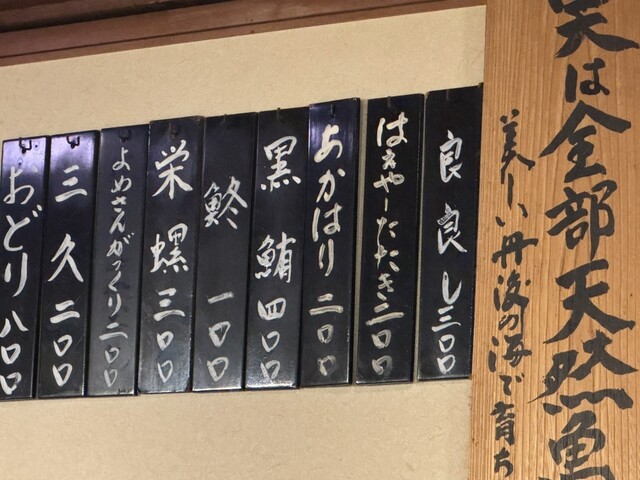 は全部天然魚
美しい丹後の海で育ち
良良し三〇〇
はえやーたたき二〇〇
あかはり二〇〇
黒鮪四〇〇
鮗一〇〇
栄螺三〇〇
よめさんがっくり二〇〇
三久二〇〇
おどり八〇〇